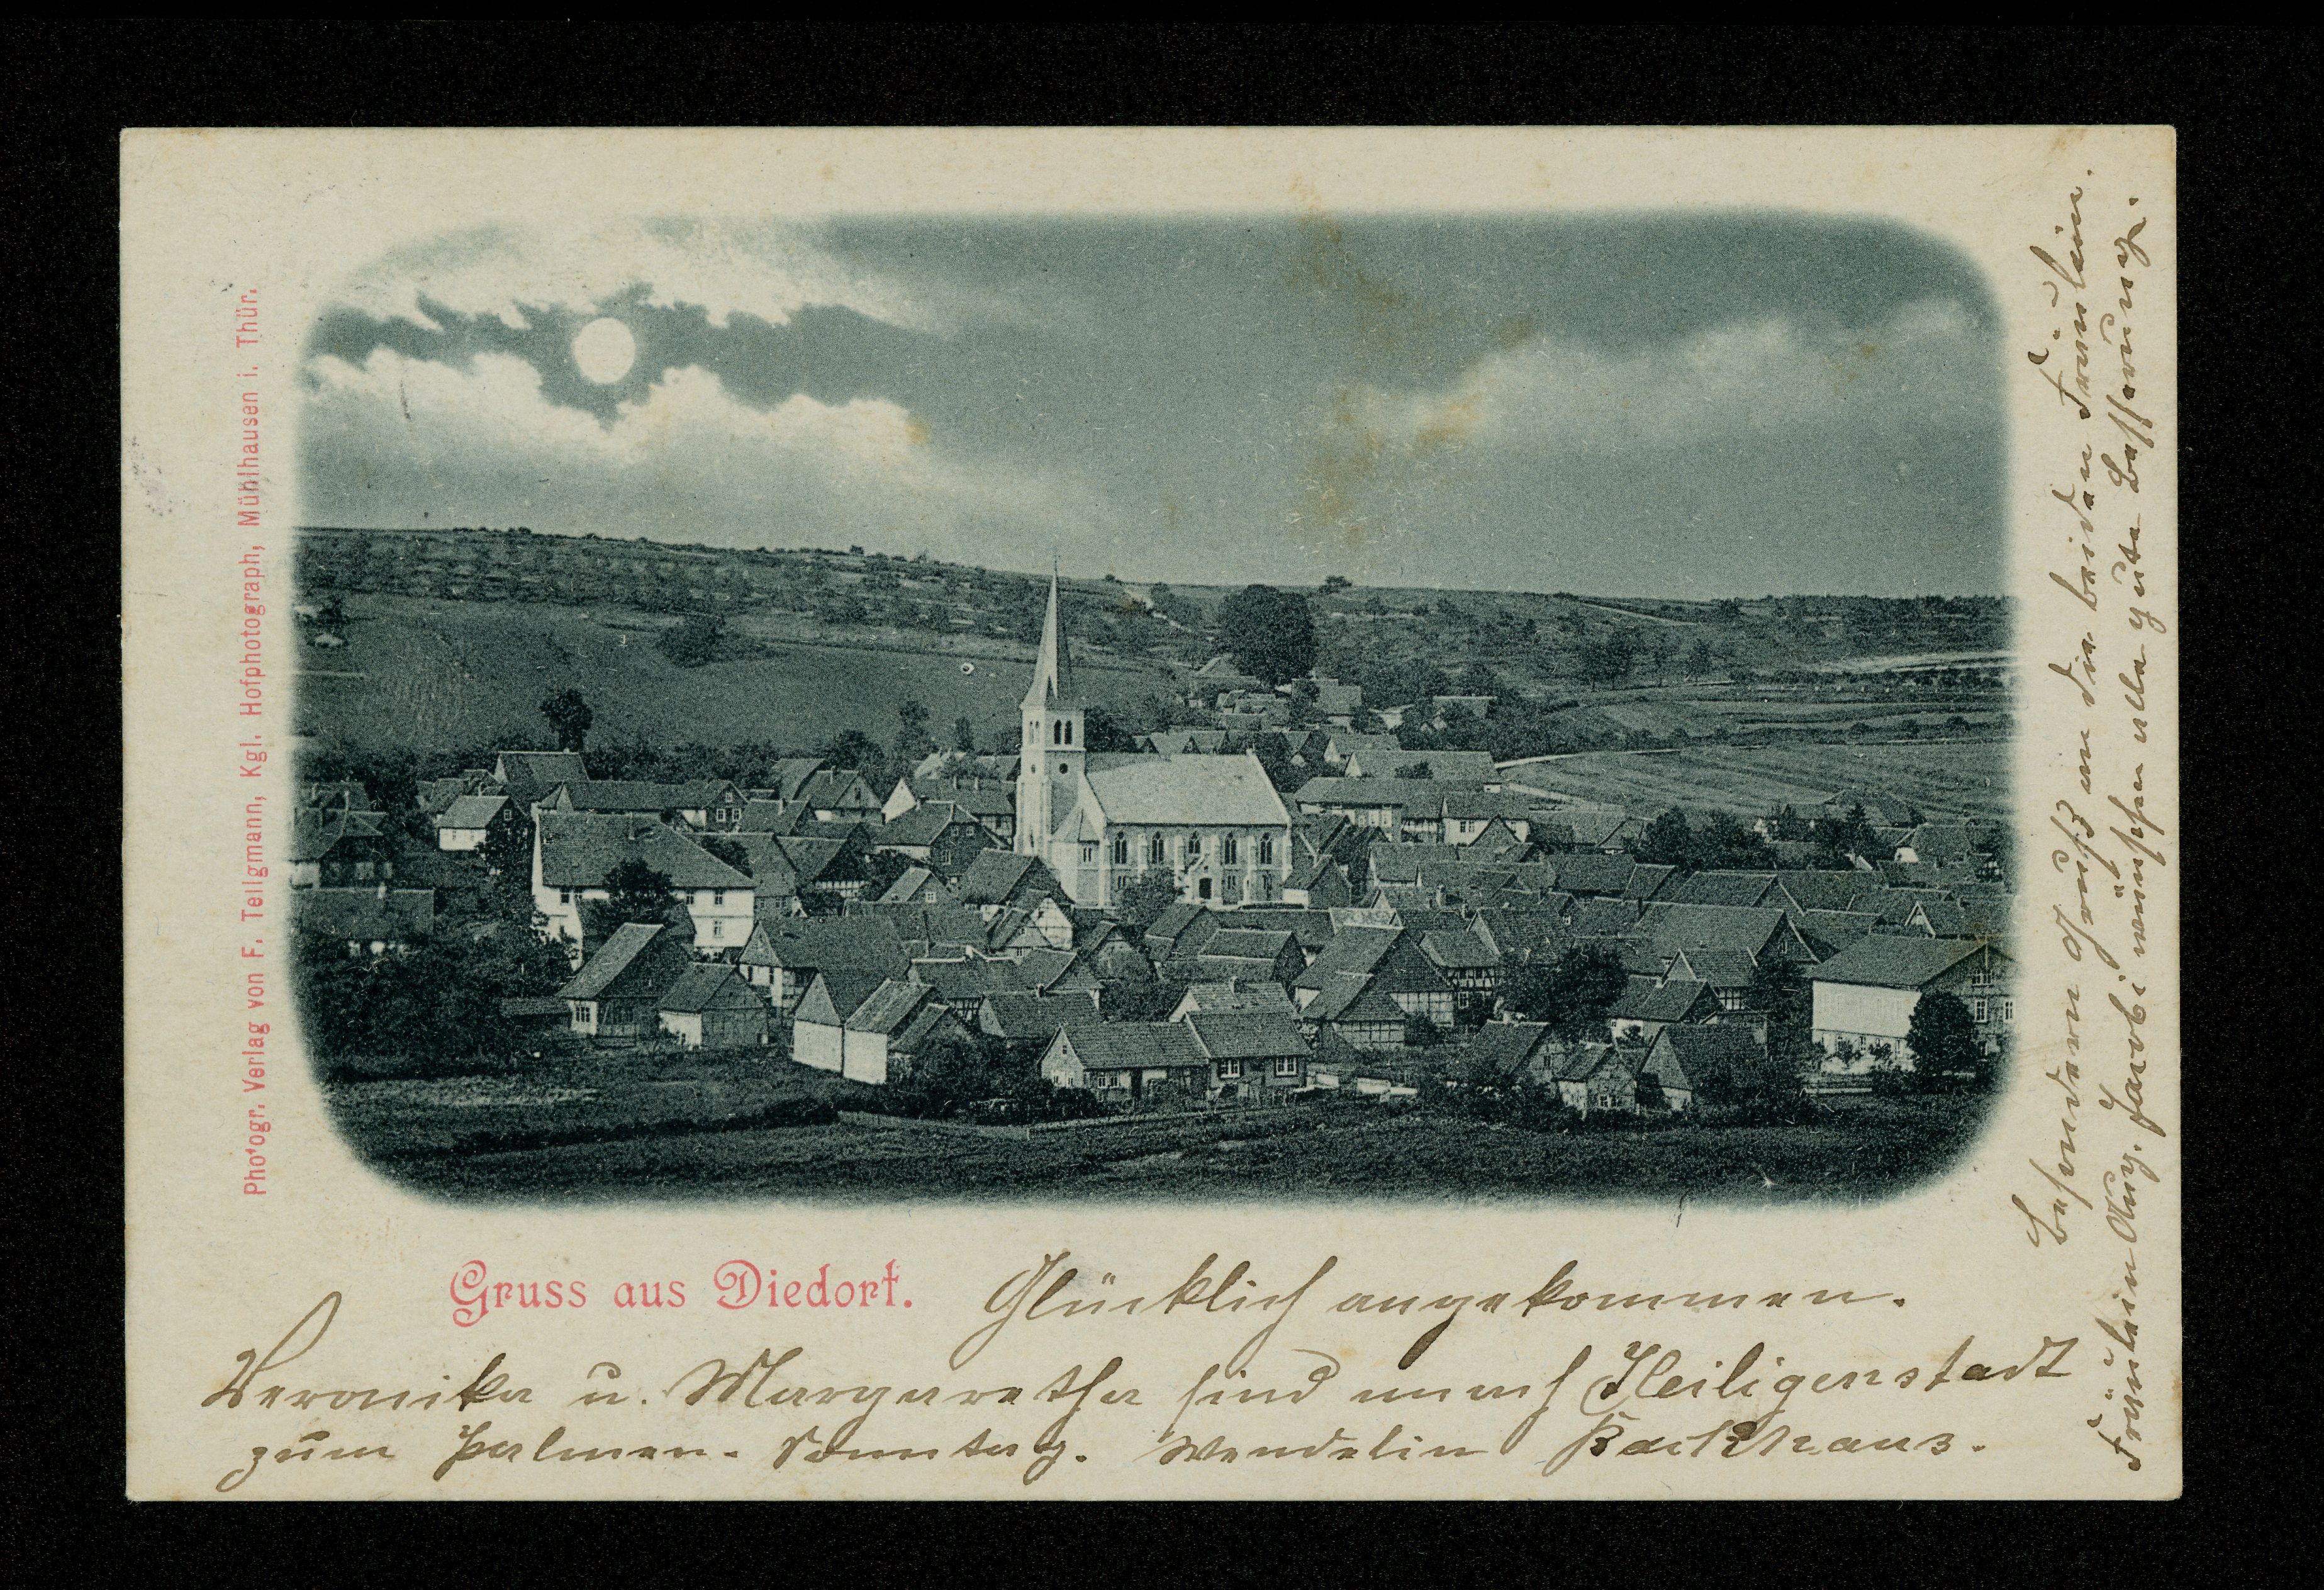 Photogr. Verlag von F. Tellgmann, Kgl. Hofphotograph, Mühlhausen i. Thür.
Gruss aus Diedorf. Glücklich angekommen.
Veronika u. Margaretha sind nach Heiligenstadt
zum Palmen-Sonntag. Wendelin Backhaus.
Besondern Gruß an die beiden Fräulein.
Fräulein Aug. Jacobi wünschen alle gute Besserung.